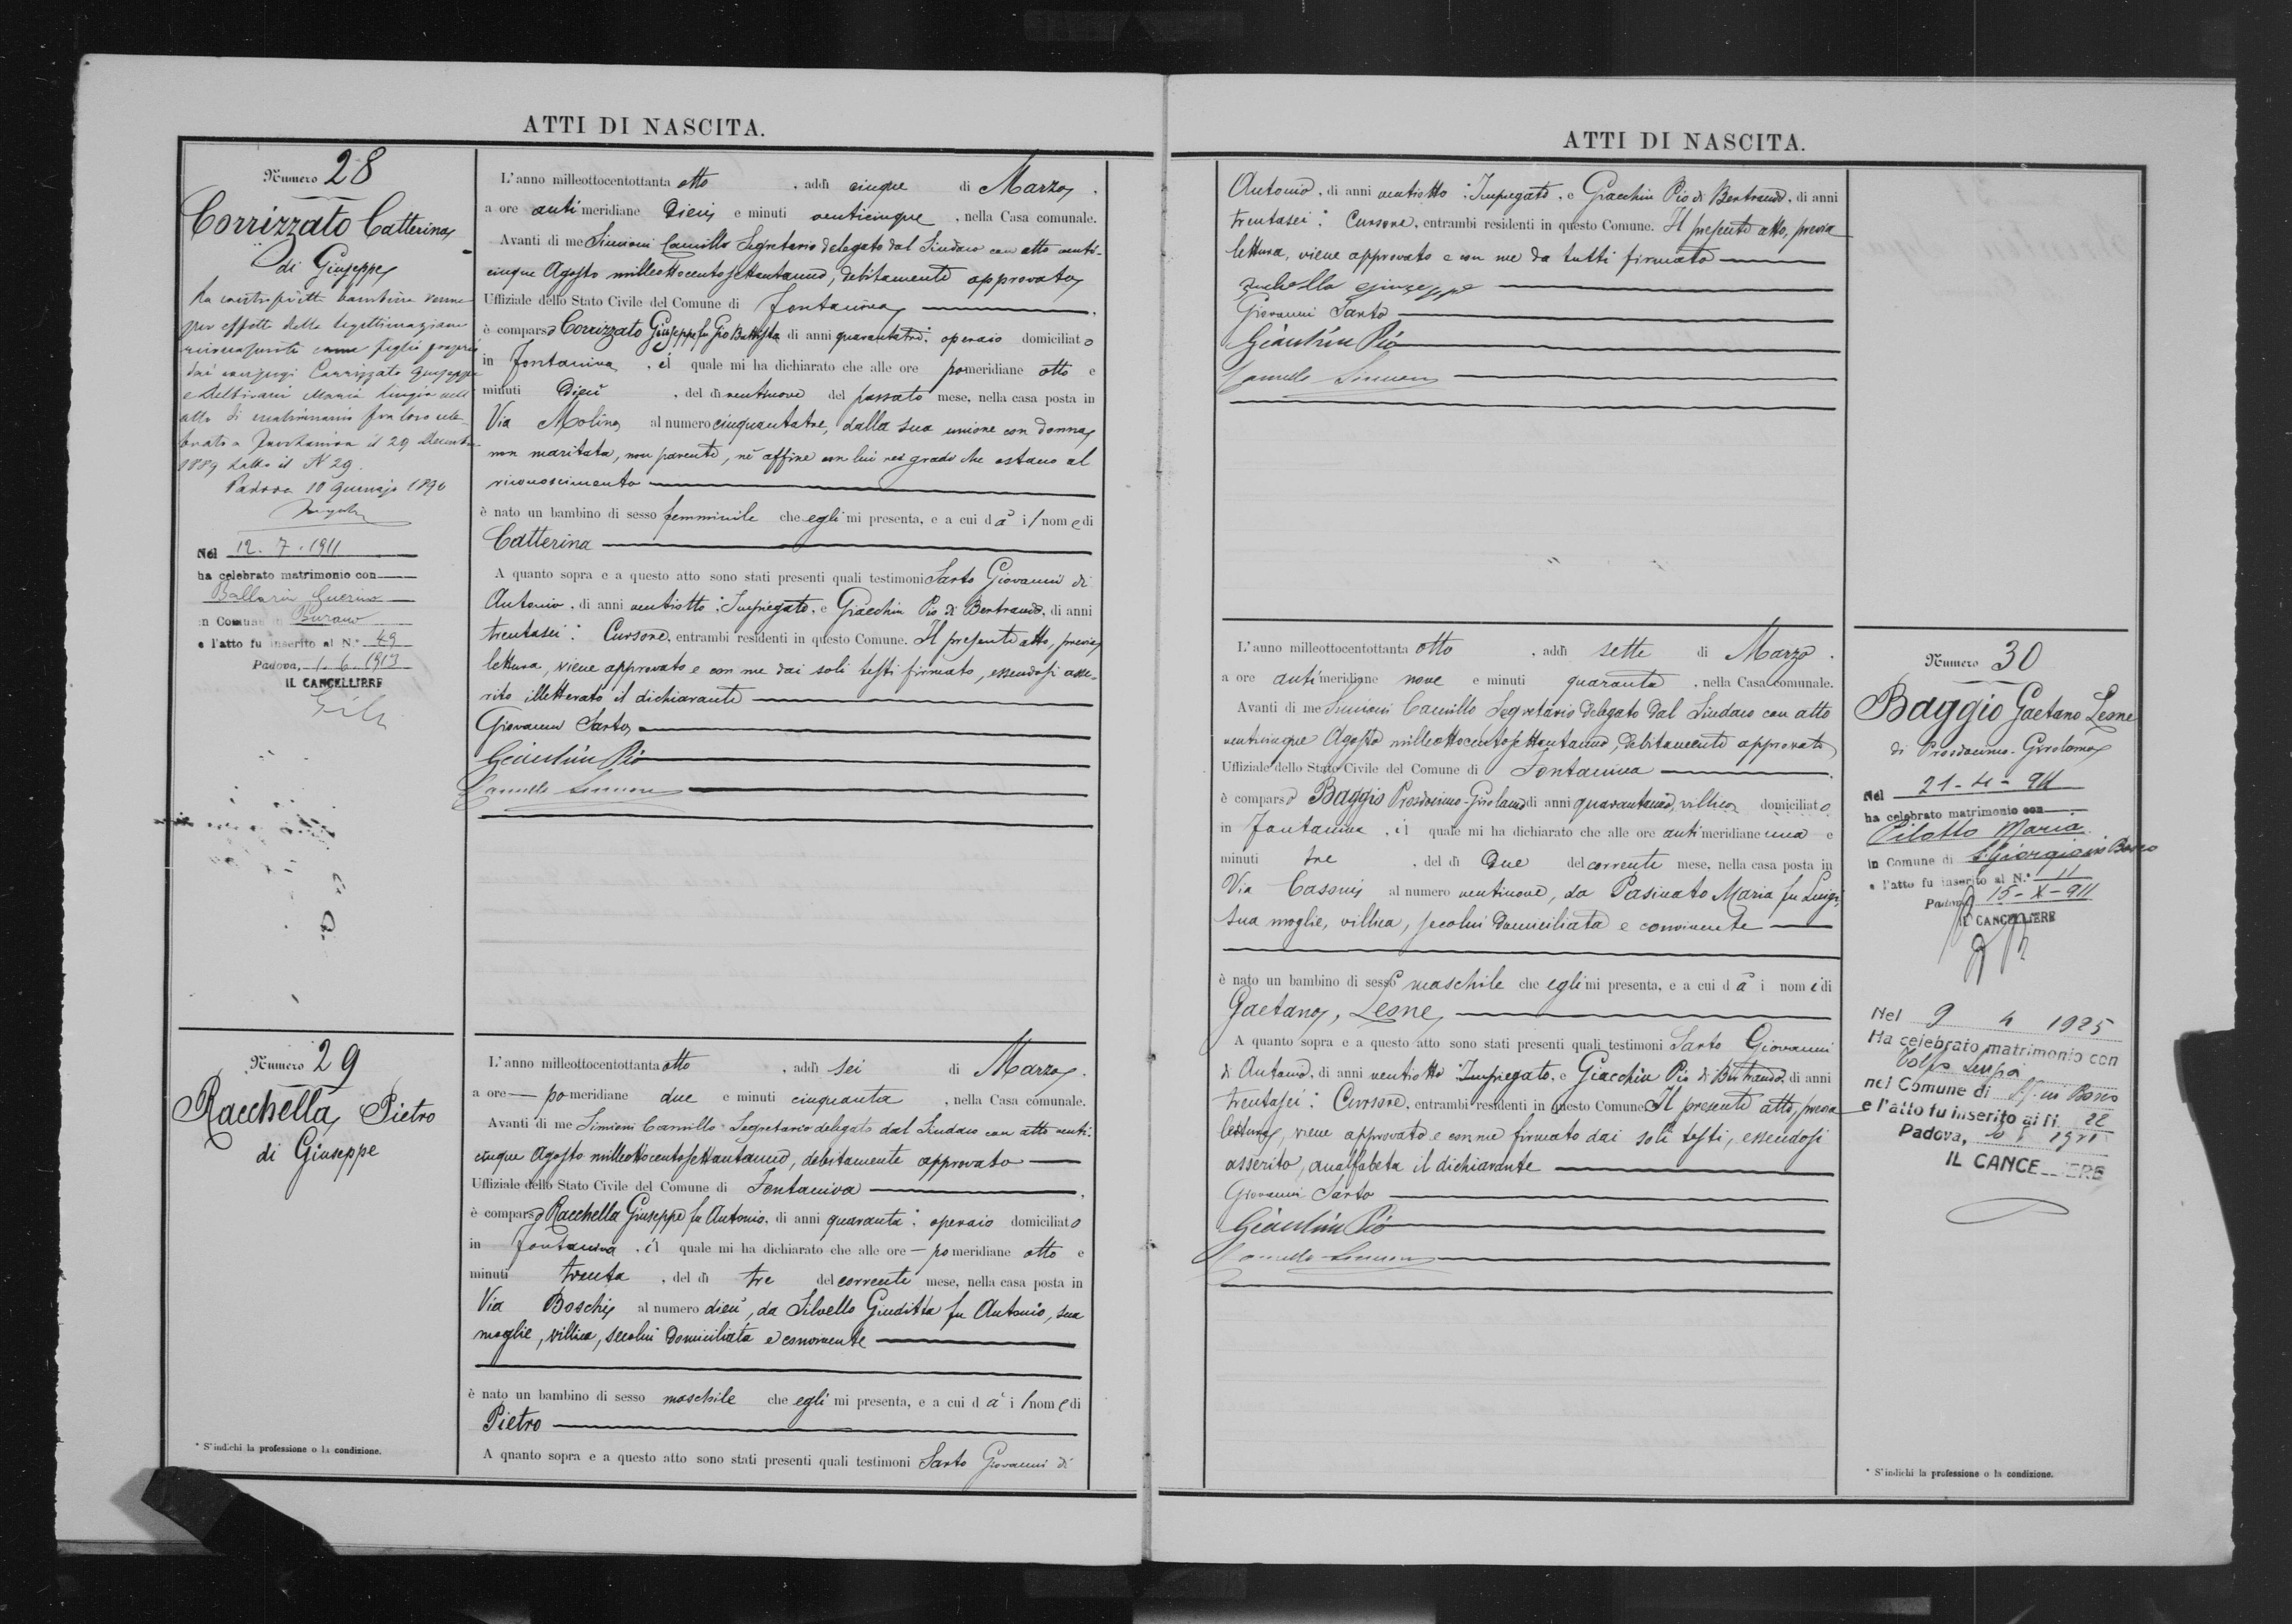 ATTI DI NASCITA.
Numero 28
Corrizzato Catterina
di Giuseppe
La controscritta bambina venne
per effetto della legittimazione
riconosciuta come figlia propria
dai coniugi Corrizzato Giuseppe
e Maria Luigia nell'
atto di matrimonio fra loro cele-
brato a Fontaniva il 29 Decembre
1889 sotto il N 29.
Padova 10 Gennajo 1890
Nel 12. 7. 1911
ha celebrato matrimonio con
Ballarin Guerino
in Comune di Burano
e l'atto fu inserito al N.° 49
Padova, 1. 6. 1913
IL CANCELLIERE
L'anno milleottocentottanta otto , addì cinque di Marzo .
a ore antimeridiane Dieci e minuti venticinque , nella Casa comunale.
Avanti di me Simioni Camillo Segretario delegato dal Sindaco con atto venti-
cinque Agosto milleottocentosettantauno, debitamente approvato
Uffiziale dello Stato Civile del Comune di Fontaniva .
è comparso Corrizzato Giuseppe fu Gio Battista di anni quarantatre: operaio domiciliato
in Fontaniva , il quale mi ha dichiarato che alle ore pomeridiane otto e
minuti Dieci , del dì ventinove del passato mese, nella casa posta in
Via Molina al numero cinquantatre, dalla sua unione con donna
non maritata, non parente, nè affine con lui nei gradi che ostano al
riconoscimento
è nato un bambino di sesso femminile che egli mi presenta, e a cui dà il nome di
Catterina
A quanto sopra e a questo atto sono stati presenti quali testimoni Sarto Giovanni di
Antonio, di anni ventiotto: Impiegato, e Giacchin Pio di Bertrando, di anni
trentasei: Cursore, entrambi residenti in questo Comune. Il presente atto, previa
lettura, viene approvato e con me dai soli testi firmato, essendosi asse-
rito illetterato il dichiarante
Giovanni Sarto
Giacchin Pio
Camillo Simioni
Numero 29
Racchella Pietro
di Giuseppe
* S'indichi la professione o la condizione.
L'anno milleottocentottanta otto , addì sei di Marzo .
a ore — pomeridiane due e minuti cinquanta , nella Casa comunale.
Avanti di me Simioni Camillo Segretario delegato dal Sindaco con atto venti-
cinque Agosto milleottocentosettantauno, debitamente approvato
Uffiziale dello Stato Civile del Comune di Fontaniva ,
è comparso Racchella Giuseppe fu Antonio, di anni quaranta: operaio domiciliato
in Fontaniva , il quale mi ha dichiarato che alle ore — pomeridiane otto e
minuti trenta , del dì tre del corrente mese, nella casa posta in
Via Boschi al numero dieci, da Silvello Giuditta fu Antonio, sua
moglie, villica, secolui domiciliata e convivente
è nato un bambino di sesso maschile che egli mi presenta, e a cui dà il nome di
Pietro
A quanto sopra e a questo atto sono stati presenti quali testimoni Sarto Giovanni di
ATTI DI NASCITA.
Antonio, di anni ventiotto: Impiegato, e Giacchin Pio di Bertrando, di anni
trentasei: Cursore, entrambi residenti in questo Comune. Il presente atto, previa
lettura, viene approvato e con me da tutti firmato
Giovanni Sarto
Giacchin Pio
Camillo Simioni
L'anno milleottocentottanta otto , addì sette di Marzo .
a ore antimeridiane nove e minuti quaranta , nella Casa comunale.
Avanti di me Simioni Camillo Segretario delegato dal Sindaco con atto
venticinque Agosto milleottocentosettantauno, debitamente approvato
Uffiziale dello Stato Civile del Comune di Fontaniva .
è comparso Baggio Prosdocimo-Girolamo di anni quarantauno, villico domiciliato
in Fontaniva , il quale mi ha dichiarato che alle ore antimeridiane una e
minuti tre , del dì Due del corrente mese, nella casa posta in
Via Casoni al numero ventinove, da Pasinato Maria fu Luigi,
sua moglie, villica, secolui domiciliata e convivente
è nato un bambino di sesso maschile che egli mi presenta, e a cui dà i nomi di
Gaetano, Leone
A quanto sopra e a questo atto sono stati presenti quali testimoni Sarto Giovanni
di Antonio, di anni ventiotto Impiegato, e Giacchin Pio di Bertrando, di anni
trentasei: Cursore, entrambi residenti in questo Comune. Il presente atto, previa
lettura, viene approvato e con me firmato dai soli testi, essendosi
asserito, analfabeta il dichiarante
Giovanni Sarto
Giacchin Pio
Camillo Simioni
Numero 30
Baggio Gaetano Leone
di Prosdocimo-Girolamo
Nel 21-4-911
ha celebrato matrimonio con
Pilotto Maria
in Comune di S. Giorgio in Bosco
e l'atto fu inserito al N.° 11
Padova 15-X-911
IL CANCELLIERE
Nel 9 4 1925
Ha celebrato matrimonio con
nel Comune di in Bosco
e l'atto fu inserito al N. 22
Padova,
IL CANCELLIERE
* S'indichi la professione o la condizione.